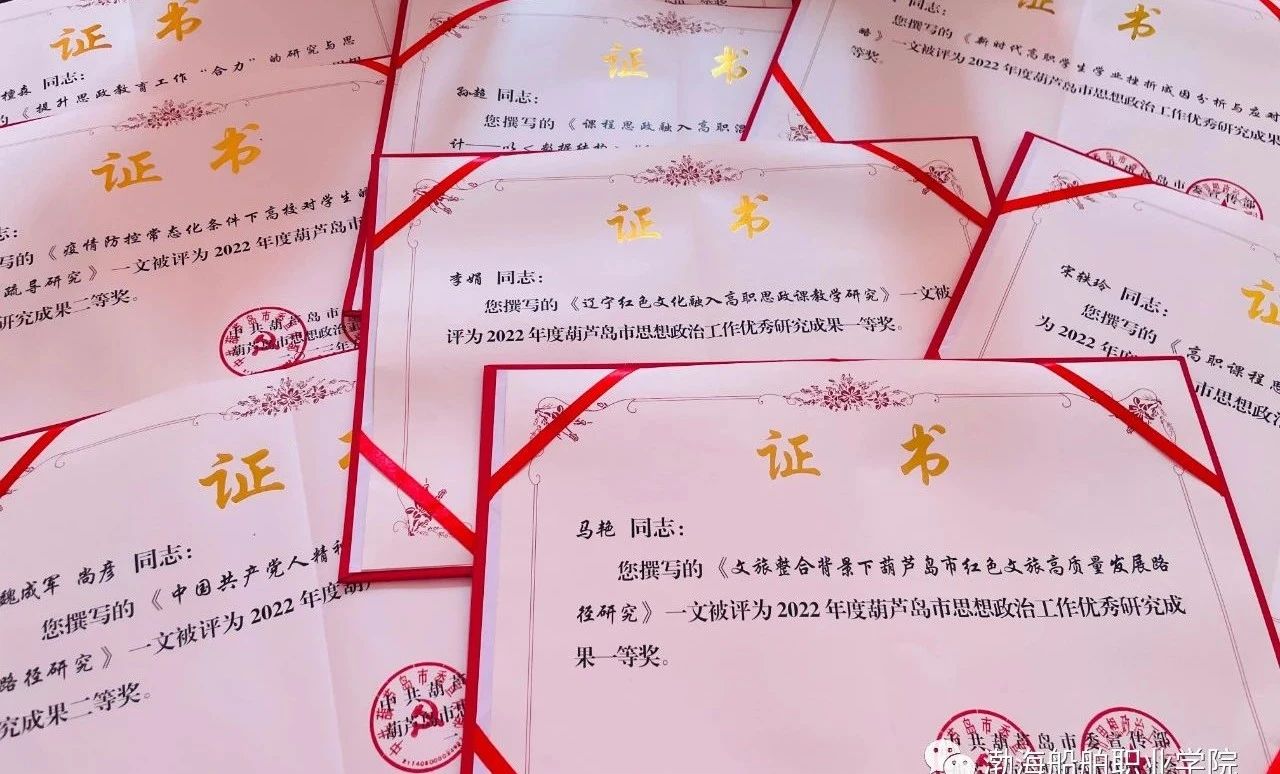 证 书
同志:
《提升思政教育工作“合力”的研究与思
证 书
孙超 同志:
您撰写的《课程思政融入高职
计——以《数据结构》
证 书
您撰写的《新时代高职学生学业挫折成因分析与应对
略》一文被评为2022年度葫芦岛市思想政治工作优秀研究成果
等奖。
证 书
志:
写的《疫情防控常态化条件下高校对学生
疏导研究》一文被评为2022年度葫芦岛市
研究成果二等奖。
中共葫芦岛市
葫芦岛市思想政治
证 书
李娟 同志:
您撰写的《辽宁红色文化融入高职思政课教学研究》一文被
评为2022年度葫芦岛市思想政治工作优秀研究成果一等奖。
市委宣传部
宋轶玲 同志:
您撰写的《高职课程思
为2022年度
市思想政治
证
魏成军 尚彦 同志:
您撰写的《中国共产党人精神
路径研究》一文被评为2022年度葫芦
究成果二等奖。
中共葫芦
葫芦岛市思
证 书
马艳 同志:
您撰写的《文旅整合背景下葫芦岛市红色文旅高质量发展路
径研究》一文被评为2022年度葫芦岛市思想政治工作优秀研究成
果一等奖。
中共葫芦岛市委宣传部
渤海船舶职业学院